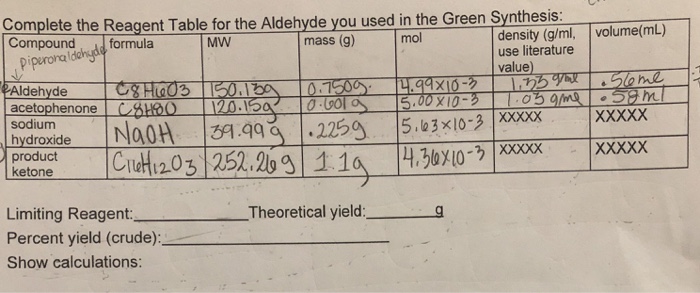 Complete the Reagent Table for the Aldehyde you used in the Green Synthesis:
Compound piperonaldehyde formula MW mass (g) mol density (g/ml, use literature value) volume(mL)
Aldehyde C8H6O3 150.13g 0.750g 4.99x10-3 1.33 g/ml .56ml
acetophenone C8H8O 120.15g 0.601g 5.00x10-3 1.03 g/ml .58ml
sodium hydroxide NaOH 39.99g .225g 5.63x10-3 XXXXX XXXXX
product ketone C16H12O3 252.26g 1.1g 4.36x10-3 XXXXX XXXXX
Limiting Reagent: Theoretical yield: g
Percent yield (crude):
Show calculations: